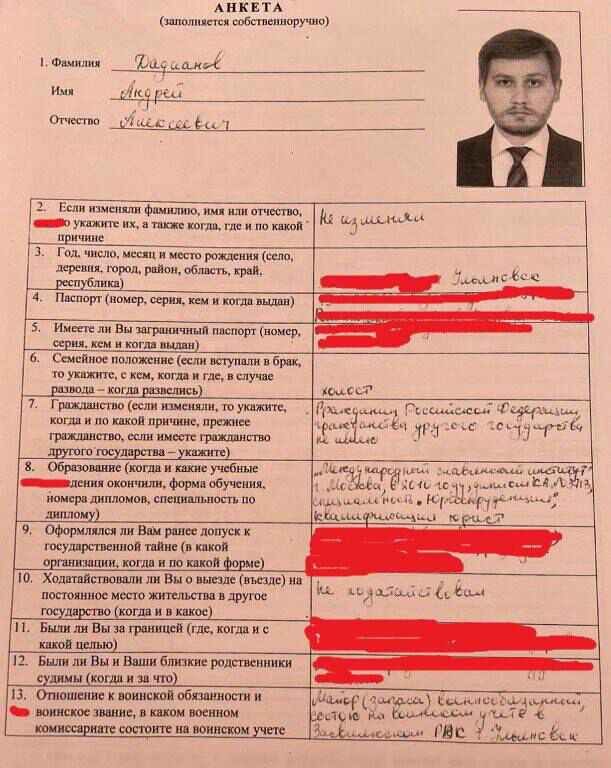 АНКЕТА
(заполняется собственноручно)
1. Фамилия Дадианов
Имя Андрей
Отчество Алексеевич
2. Если изменяли фамилию, имя или отчество,
о укажите их, а также когда, где и по какой
причине
Не изменял
3. Год, число, месяц и место рождения (село,
деревня, город, район, область, край,
республика)
Ульяновск
4. Паспорт (номер, серия, кем и когда выдан)
5. Имеете ли Вы заграничный паспорт (номер,
серия, кем и когда выдан)
6. Семейное положение (если вступали в брак,
то укажите, с кем, когда и где, в случае
развода – когда развелись)
холост
7. Гражданство (если изменяли, то укажите,
когда и по какой причине, прежнее
гражданство, если имеете гражданство
другого государства – укажите)
Гражданин Российской Федерации,
гражданства другого государства
не имею
8. Образование (когда и какие учебные
дения окончили, форма обучения,
номера дипломов, специальность по
диплому)
„Международный славянский институт"
г. Москва, в 2010 году, диплом КА №
специальность „Юриспруденция",
квалификация юрист
9. Оформлялся ли Вам ранее допуск к
государственной тайне (в какой
организации, когда и по какой форме)
10. Ходатайствовали ли Вы о выезде (въезде) на
постоянное место жительства в другое
государство (когда и в какое)
Не ходатайствовал
11. Были ли Вы за границей (где, когда и с
какой целью)
12. Были ли Вы и Ваши близкие родственники
судимы (когда и за что)
13. Отношение к воинской обязанности и
воинское звание, в каком военном
комиссариате состоите на воинском учете
Майор (запаса) военнообязанный,
состою на воинском учете в
Засвияжском РВК г. Ульяновск